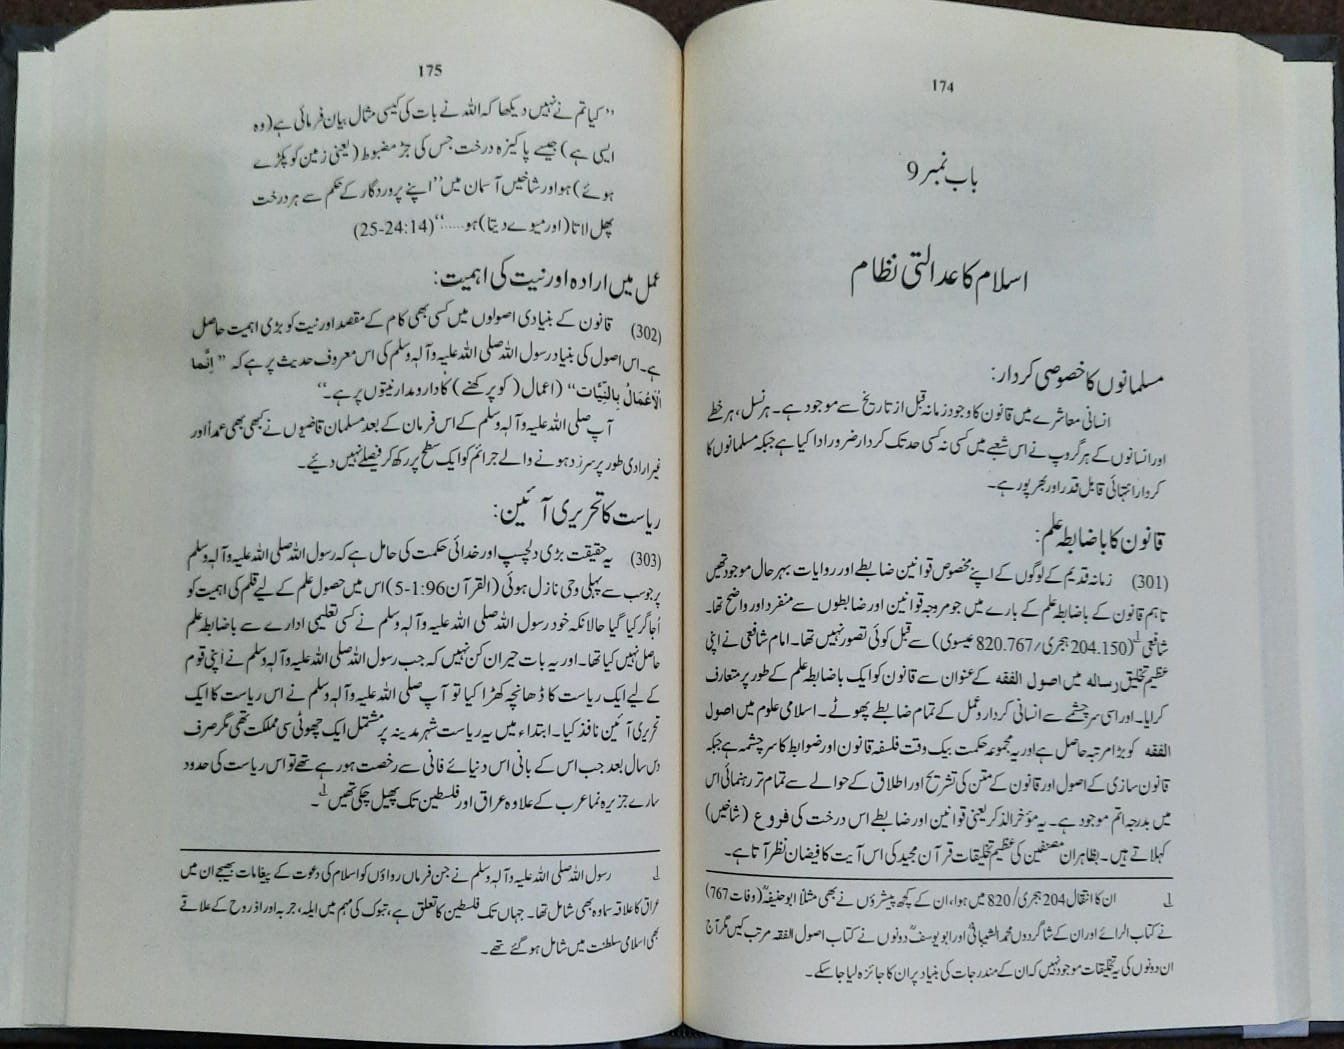 174
باب نمبر 9
اسلام کا عدالتی نظام
مسلمانوں کا خصوصی کردار:
انسانی معاشرے میں قانون کا وجود زمانہ قبل از تاریخ سے موجود ہے۔ ہر نسل، ہر خطے
اور انسانوں کے ہر گروپ نے اس شعبے میں کسی نہ کسی حد تک کردار ضرور ادا کیا ہے جبکہ مسلمانوں کا
کردار انتہائی قابل قدر اور بھرپور ہے۔
قانون کا باضابطہ علم:
(301) زمانہ قدیم کے لوگوں کے اپنے مخصوص قوانین ضابطے اور روایات بہرحال موجود تھیں
تاہم قانون کے باضابطہ علم کے بارے میں جو مروجہ قوانین اور ضابطوں سے منفرد اور واضح تھا۔
شافعی 1؎ (204.150 ہجری/ 820.767 عیسوی) سے قبل کوئی تصور نہیں تھا۔ امام شافعی نے اپنی
عظیم تخلیق رسالہ میں اصول الفقہ کے عنوان سے قانون کو ایک باضابطہ علم کے طور پر متعارف
کرایا۔ اور اسی سرچشمے سے انسانی کردار و عمل کے تمام ضابطے پھوٹے۔ اسلامی علوم میں اصول
الفقہ کو بڑا مرتبہ حاصل ہے اور یہ مجموعہ حکمت بیک وقت فلسفہ قانون اور ضوابط کا سرچشمہ ہے جبکہ
قانون سازی کے اصول اور قانون کے متن کی تشریح اور اطلاق کے حوالے سے تمام تر رہنمائی اس
میں بدرجہ اتم موجود ہے۔ یہ مؤخر الذکر یعنی قوانین اور ضابطے اس درخت کی فروع (شاخیں)
کہلاتے ہیں۔ بظاہر ان مصنفین کی عظیم تخلیقات قرآن مجید کی اس آیت کا فیضان نظر آتا ہے۔
1؎ ان کا انتقال 204 ہجری/ 820 میں ہوا، ان کے کچھ پیشرؤں نے بھی مثلاً ابو حنیفہؒ (وفات 767)
نے کتاب الرائے اور ان کے شاگردوں محمد الشیبانیؒ اور ابو یوسفؒ دونوں نے کتاب اصول الفقہ مرتب کیں مگر آج
ان دونوں کی یہ تخلیقات موجود نہیں کہ ان کے مندرجات کی بنیاد پر ان کا جائزہ لیا جا سکے۔
175
’’کیا تم نے نہیں دیکھا کہ اللہ نے بات کی کیسی مثال بیان فرمائی ہے (وہ
ایسی ہے) جیسے پاکیزہ درخت جس کی جڑ مضبوط (یعنی زمین کو پکڑے
ہوئے) ہو اور شاخیں آسمان میں’’ اپنے پروردگار کے حکم سے ہر درخت
پھل لاتا (اور میوے دیتا) ہو......‘‘ (25-24:14)
عمل میں ارادہ اور نیت کی اہمیت:
(302) قانون کے بنیادی اصولوں میں کسی بھی کام کے مقصد اور نیت کو بڑی اہمیت حاصل
ہے۔ اس اصول کی بنیاد رسول اللہ صلی اللہ علیہ وآلہ وسلم کی اس معروف حدیث پر ہے کہ ’’ اِنَّما
الْاَعْمَالُ بِالنِّیَّات‘‘ (اعمال (کو پرکھنے) کا دارومدار نیتوں پر ہے۔‘‘
آپ صلی اللہ علیہ وآلہ وسلم کے اس فرمان کے بعد مسلمان قاضیوں نے کبھی بھی عمداً اور
غیر ارادی طور پر سرزد ہونے والے جرائم کو ایک سطح پر رکھ کر فیصلے نہیں دیئے۔
ریاست کا تحریری آئین:
(303) یہ حقیقت بڑی دلچسپ اور خدائی حکمت کی حامل ہے کہ رسول اللہ صلی اللہ علیہ وآلہ وسلم
پر جو سب سے پہلی وحی نازل ہوئی (القرآن 96:1-5) اس میں حصول علم کے لیے قلم کی اہمیت کو
اُجاگر کیا گیا حالانکہ خود رسول اللہ صلی اللہ علیہ وآلہ وسلم نے کسی تعلیمی ادارے سے باضابطہ علم
حاصل نہیں کیا تھا۔ اور یہ بات حیران کن نہیں کہ جب رسول اللہ صلی اللہ علیہ وآلہ وسلم نے اپنی قوم
کے لیے ایک ریاست کا ڈھانچہ کھڑا کیا تو آپ صلی اللہ علیہ وآلہ وسلم نے اس ریاست کا ایک
تحریری آئین نافذ کیا۔ ابتداء میں یہ ریاست شہر مدینہ پر مشتمل ایک چھوٹی سی مملکت تھی مگر صرف
دس سال بعد جب اس کے بانی اس دنیائے فانی سے رخصت ہو رہے تھے تو اس ریاست کی حدود
سارے جزیرہ نما عرب کے علاوہ عراق اور فلسطین تک پھیل چکی تھیں 1؎۔
1؎ رسول اللہ صلی اللہ علیہ وآلہ وسلم نے جن فرماں رواؤں کو اسلام کی دعوت کے پیغامات بھیجے ان میں
عراق کا علاقہ سماوہ بھی شامل تھا۔ جہاں تک فلسطین کا تعلق ہے، تبوک کی مہم میں ایلہ، جربہ اور اذروح کے علاقے
بھی اسلامی سلطنت میں شامل ہو گئے تھے۔